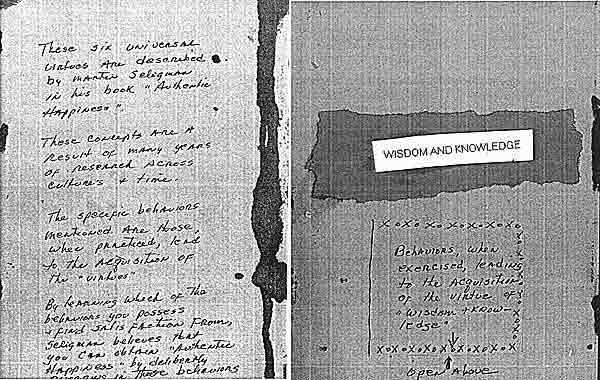 These six universal
virtues are described
by Martin Seligman
in his book "Authentic
Happiness".
These concepts are a
result of many years
of research across
cultures + time.
The specific behaviors
mentioned are those,
when practiced, lead
to the acquisition of
the "virtues"
By learning which of the
behaviors you possess
+ find satisfaction from,
Seligman believes that
you can obtain "Authentic
Happiness" by deliberately
in these behaviors
WISDOM AND KNOWLEDGE
XoXoXoXoXoXoX
Behaviors, when
exercised, leading
to the acquisition
of the virtue of
"Wisdom + Know-
ledge".
XoXoXoXoXoXoX
open Above